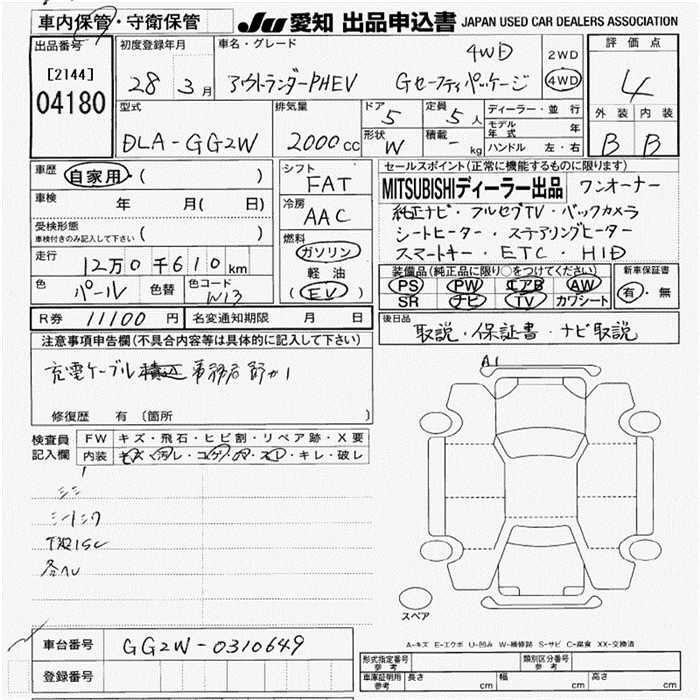 車内保管・守衛保管
JU 愛知 出品申込書 JAPAN USED CAR DEALERS ASSOCIATION
出品番号 [2144] 04180
初度登録年月 28年 3月
車名・グレード アウトランダーPHEV 4WD Gセーフティパッケージ
2WD 4WD
評価点 4
外装 内装 B B
型式 DLA-GG2W
排気量 2000cc
ドア 5 定員 5人
形状 W 積載 - kg
ディーラー・並行
モデル年式 年
ハンドル 左・右
車歴 自家用・( )
車検 年 月( 日)
受検形態 車検付きのみ記入して下さい ( )
走行 12万0千610km
色 パール 色替 色コード W13
シフト FAT
冷房 AAC
燃料 ガソリン 軽油 (EV)
セールスポイント(正常に機能するものに限ります)
MITSUBISHIディーラー出品 ワンオーナー
純正ナビ・フルセグTV・バックカメラ
シートヒーター・ステアリングヒーター
スマートキー・ETC・HID
装備品(純正品に限り○をつけてください)
PS PW エアB AW
SR ナビ TV カワシート
新車保証書 有・無
R券 11100円 名変通知期限 月 日
後日品 取説・保証書・ナビ取説
注意事項申告欄(不具合内容等は具体的に記入して下さい)
充電ケーブル 事務局
修復歴 有(箇所 )
検査員記入欄
FW キズ・飛石・ヒビ割・リペア跡・X要
内装 キズ・汚レ・コゲ・穴・スレ・キレ・破レ
A1
スペア
A-キズ E-エクボ U-凹み W-補修跡 S-サビ C-腐食 XX-交換済
車台番号 GG2W-0310649
登録番号
形式指定番号 参考 類別区分番号 参考
車庫証明用 参考 長さ cm 幅 cm 高さ cm